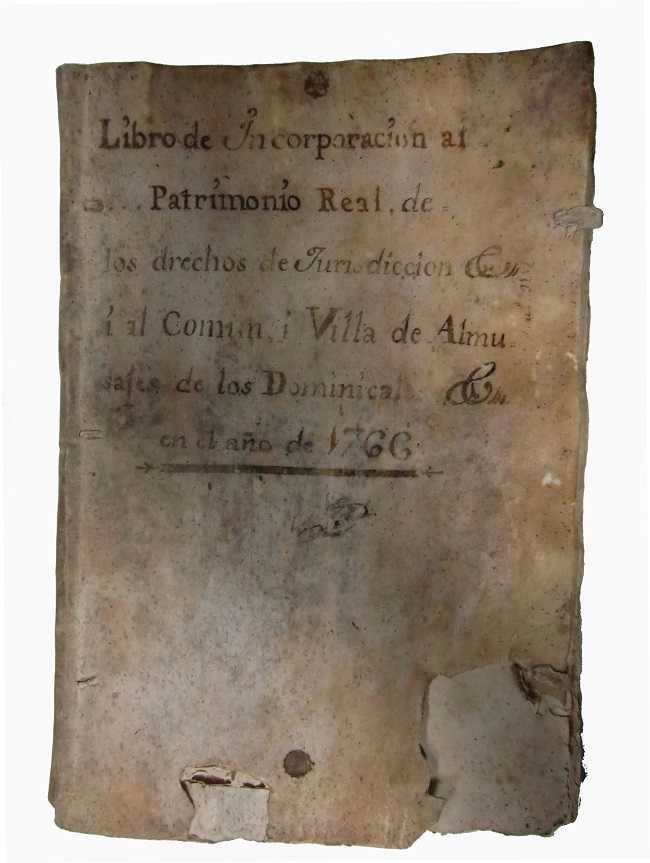 Libro de Incorporacion al
Patrimonio Real, de
los drechos de Jurisdiccion &
i al Comun, i Villa de Almu
safes de los Dominicales &
en el año de 1766